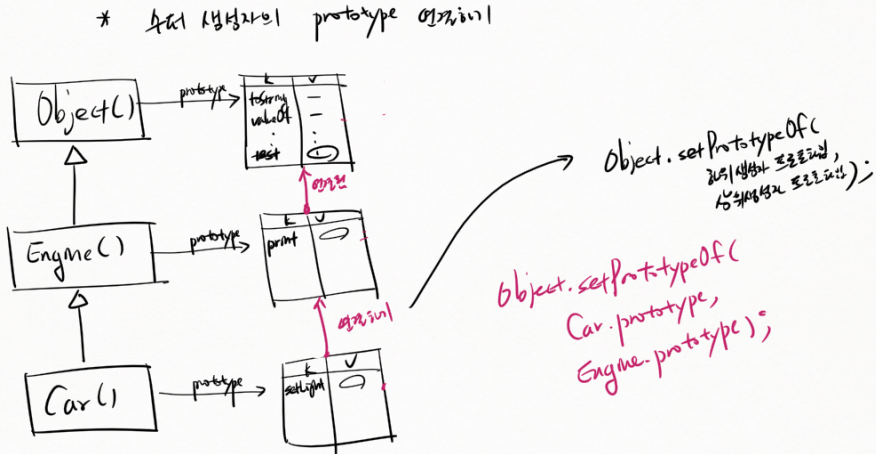 * 수퍼 생성자의 prototype 연결하기
Object()
prototype
K V
toString —
valueOf —
:
:
test
연결됨
Object.setPrototypeOf(
하위생성자 프로토타입,
상위생성자 프로토타입);
Engine()
prototype
K V
print
연결하기
Object.setPrototypeOf(
Car.prototype,
Engine.prototype);
Car()
prototype
K V
setLight